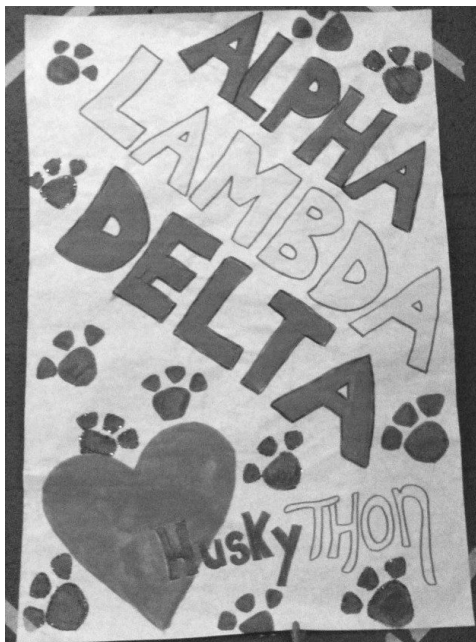 ALPHA
LAMBDA
DELTA
HusKy THON